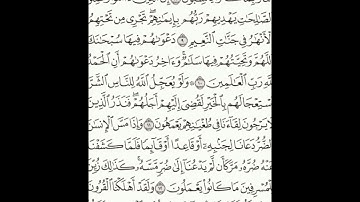 ٱلصَّٰلِحَٰتِ يَهْدِيهِمْ رَبُّهُم بِإِيمَٰنِهِمْ ۖ تَجْرِى مِن تَحْتِهِمُ
ٱلْأَنْهَٰرُ فِى جَنَّٰتِ ٱلنَّعِيمِ ۝٩ دَعْوَىٰهُمْ فِيهَا سُبْحَٰنَكَ
ٱللَّهُمَّ وَتَحِيَّتُهُمْ فِيهَا سَلَٰمٌ ۚ وَءَاخِرُ دَعْوَىٰهُمْ أَنِ ٱلْحَمْدُ
لِلَّهِ رَبِّ ٱلْعَٰلَمِينَ ۝١٠ وَلَوْ يُعَجِّلُ ٱللَّهُ لِلنَّاسِ ٱلشَّرَّ
ٱسْتِعْجَالَهُم بِٱلْخَيْرِ لَقُضِىَ إِلَيْهِمْ أَجَلُهُمْ ۖ فَنَذَرُ ٱلَّذِينَ
لَا يَرْجُونَ لِقَآءَنَا فِى طُغْيَٰنِهِمْ يَعْمَهُونَ ۝١١ وَإِذَا مَسَّ ٱلْإِنسَٰنَ
ٱلضُّرُّ دَعَانَا لِجَنۢبِهِۦٓ أَوْ قَاعِدًا أَوْ قَآئِمًا فَلَمَّا كَشَفْنَا
عَنْهُ ضُرَّهُۥ مَرَّ كَأَن لَّمْ يَدْعُنَآ إِلَىٰ ضُرٍّ مَّسَّهُۥ ۚ كَذَٰلِكَ زُيِّنَ
لِلْمُسْرِفِينَ مَا كَانُوا۟ يَعْمَلُونَ ۝١٢ وَلَقَدْ أَهْلَكْنَا ٱلْقُرُونَ